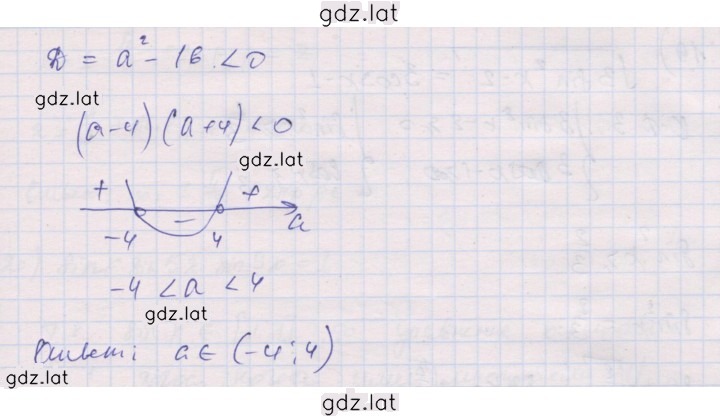 gdz.lat
D = a² - 16 < 0
gdz.lat
(a-4)(a+4)<0
gdz.lat
+ +
− a
-4 4
-4 < a < 4
gdz.lat
Ответ: a ∈ (-4; 4)
gdz.lat
gdz.lat